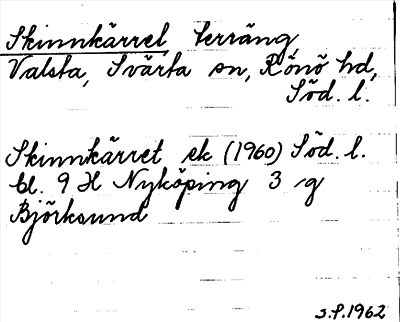 Skinnkärret, terräng,
Valsta, Svärta sn, Rönö hd,
Söd. l.
Skinnkärret ek (1960) Söd. l.
bl. 9 H Nyköping 3 g
Björksund
S.P. 1962